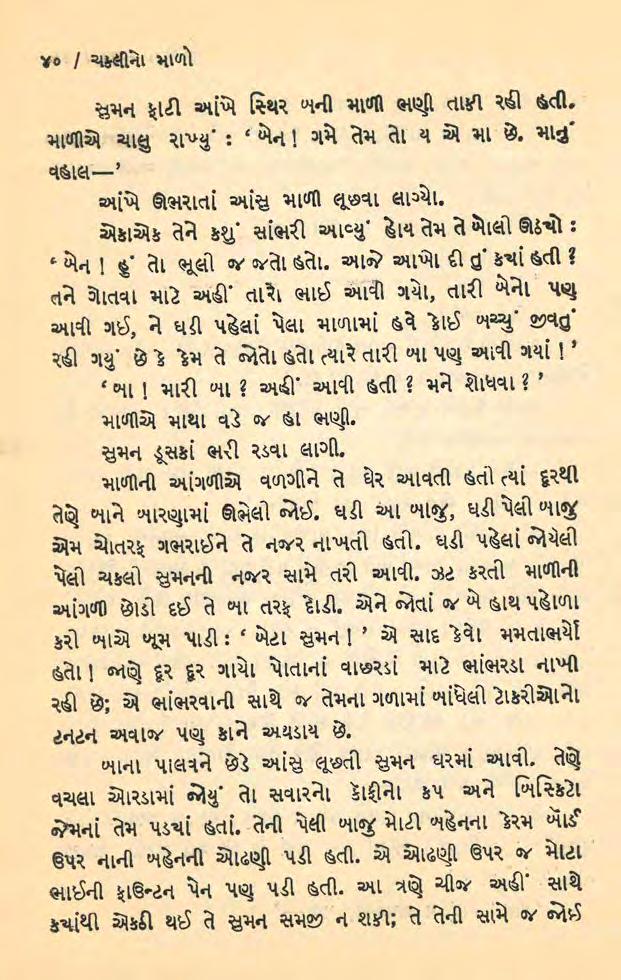 ૪૦ / ચકલીનો માળો
સુમન ફાટી આંખે સ્થિર બની માળી ભણી તાકી રહી હતી.
માળીએ ચાલુ રાખ્યું : ‘ બેન ! ગમે તેમ તો ય એ મા છે. માનું
વહાલ—’
આંખે ઊભરાતાં આંસુ માળી લૂછવા લાગ્યો.
એકાએક તેને કશું સાંભરી આવ્યું હોય તેમ તે બોલી ઊઠ્યો :
‘ બેન ! હું તો ભૂલી જ જતો હતો. આજે આખો દી તું ક્યાં હતી ?
તને ગોતવા માટે અહીં તારો ભાઈ આવી ગયો, તારી બેનો પણ
આવી ગઈ, ને ઘડી પહેલાં પેલા માળામાં હવે કોઈ બચ્ચું જીવતું
રહી ગયું છે કે કેમ તે જોતો હતો ત્યારે તારી બા પણ આવી ગયાં ! ’
‘ બા ! મારી બા ? અહીં આવી હતી ? મને શોધવા ? ’
માળીએ માથા વડે જ હા ભણી.
સુમન ડૂસકાં ભરી રડવા લાગી.
માળીની આંગળીએ વળગીને તે ઘેર આવતી હતી ત્યાં દૂરથી
તેણે બાને બારણામાં ઊભેલી જોઈ. ઘડી આ બાજુ, ઘડી પેલી બાજુ
એમ ચોતરફ ગભરાઈને તે નજર નાખતી હતી. ઘડી પહેલાં જોયેલી
પેલી ચકલી સુમનની નજર સામે તરી આવી. ઝટ કરતી માળીની
આંગળી છોડી દઈ તે બા તરફ દોડી. એને જોતાં જ બે હાથ પહોળા
કરી બાએ બૂમ પાડી : ‘ બેટા સુમન ! ’ એ સાદ કેવો મમતાભર્યો
હતો ! જાણે દૂર દૂર ગાયો પોતાનાં વાછરડાં માટે ભાંભરડા નાખી
રહી છે; એ ભાંભરવાની સાથે જ તેમના ગળામાં બાંધેલી ટોકરીઓનો
ટનટન અવાજ પણ કાને અથડાય છે.
બાના પાલવને છેડે આંસુ લૂછતી સુમન ઘરમાં આવી. તેણે
વચલા ઓરડામાં જોયું તો સવારનો કૉફીનો કપ અને બિસ્કિટો
જેમનાં તેમ પડ્યાં હતાં. તેની પેલી બાજુ મોટી બહેનના કેરમ બૉર્ડ
ઉપર નાની બહેનની ઓઢણી પડી હતી. એ ઓઢણી ઉપર જ મોટા
ભાઈની ફાઉન્ટન પેન પણ પડી હતી. આ ત્રણે ચીજ અહીં સાથે
ક્યાંથી એકઠી થઈ તે સુમન સમજી ન શકી; તે તેની સામે જ જોઈ